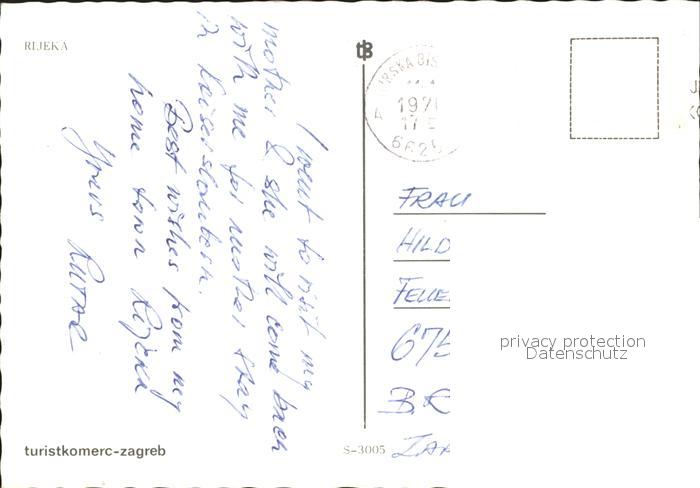 RIJEKA
I went to visit my
mother & she will come back
with me for another stay
in Kaiserslautern.
Best wishes from my
home town Rijeka
Yours
S-3005
turistkomerc-zagreb
1971
17 5
FRAU
HILD
FELLE
675
privacy protection
Datenschutz